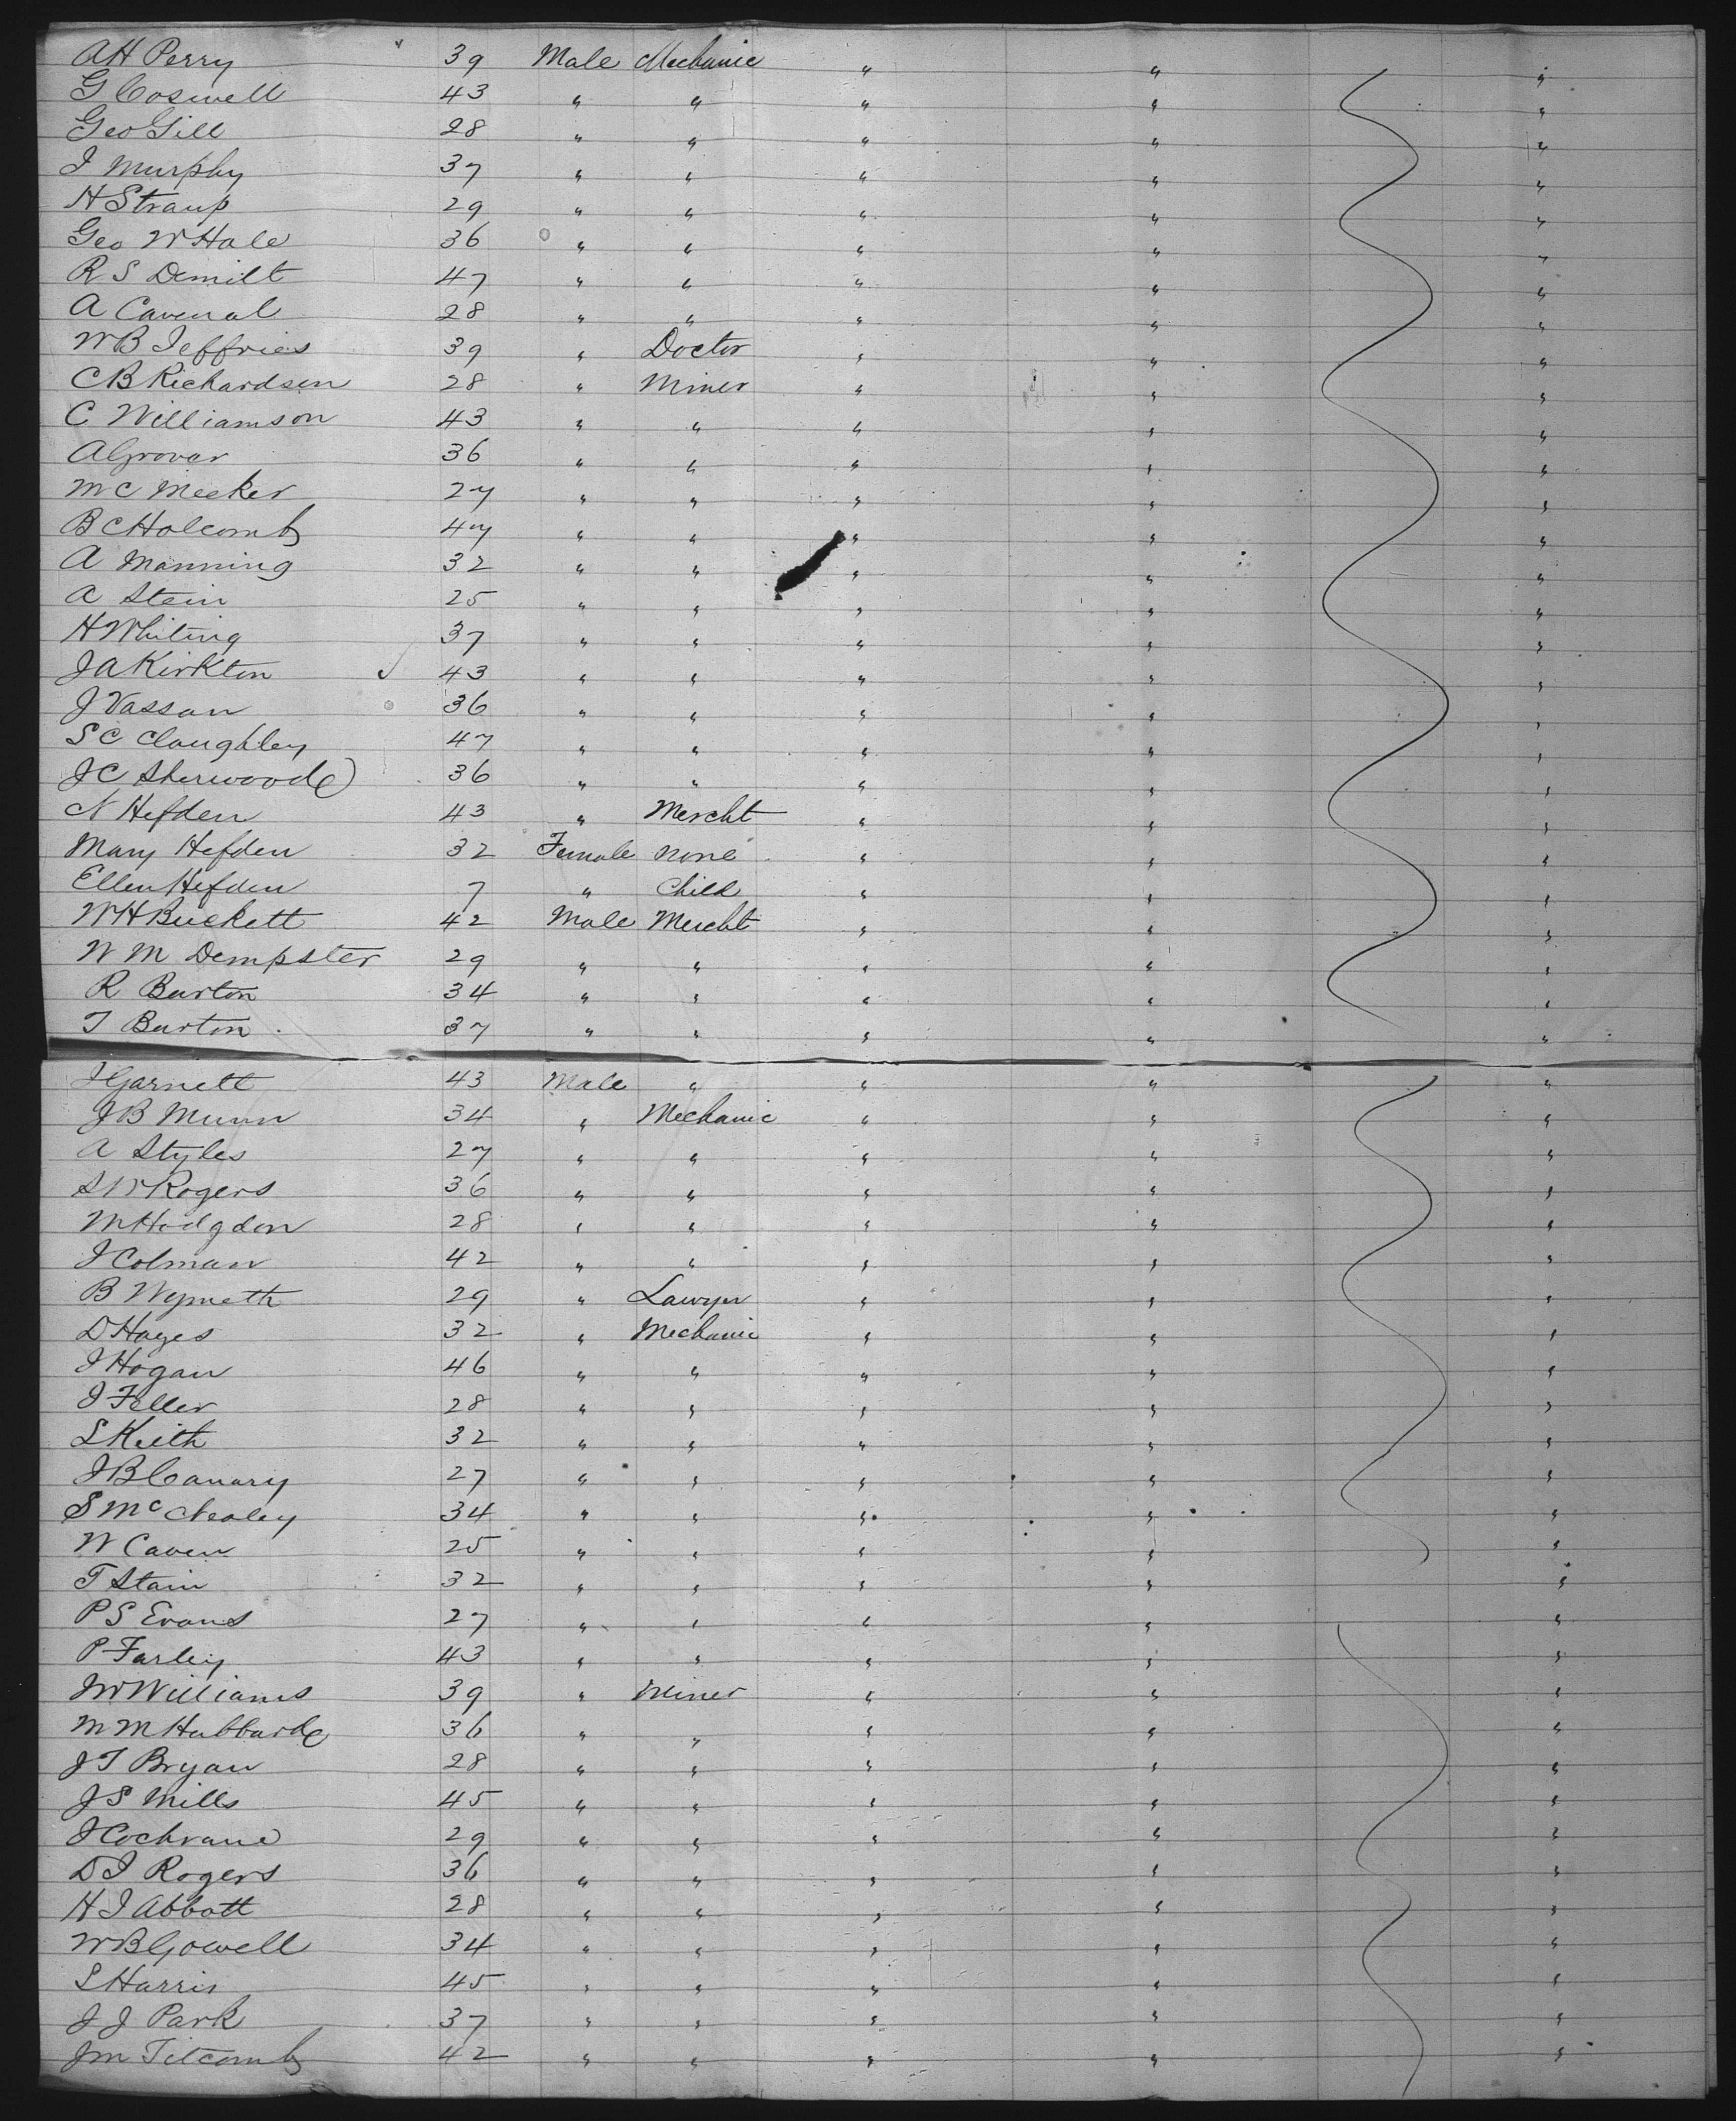 AH Perry 39 Male Mechanic " " "
G Coswell 43 " " " " "
Geo Gill 28 " " " " "
J Murphy 37 " " " " "
H Straup 29 " " " " "
Geo W Hale 36 " " " " "
R S Demilt 47 " " " " "
A Cavenal 28 " " " " "
W B Jeffries 39 " Doctor " " "
C B Richardson 28 " Miner " " "
C Williamson 43 " " " " "
A Grovar 36 " " " " "
M C Meeker 27 " " " " "
B C Holcomb 47 " " " " "
A Manning 32 " " " " "
A Stein 25 " " " " "
H Whiting 37 " " " " "
J A Kirkton 43 " " " " "
J Vassan 36 " " " " "
S C Claughley 47 " " " " "
J C Sherwood 36 " " " " "
N Hefden 43 " Mercht " " "
Mary Hefden 32 Female none " " "
Ellen Hefden 7 " Child " " "
W H Buckett 42 Male Mercht " " "
W M Dempster 29 " " " " "
R Burton 34 " " " " "
T Burton 37 " " " " "
J Garnett 43 Male " " " "
J B Munn 34 " Mechanic " " "
A Styles 27 " " " " "
S W Rogers 36 " " " " "
M Hodgdon 28 " " " " "
J Colman 42 " " " " "
B Wymeth 29 " Lawyer " " "
D Hayes 32 " Mechanic " " "
J Hogan 46 " " " " "
J Feller 28 " " " " "
L Keith 32 " " " " "
J B Canary 27 " " " " "
S Mc Nealey 34 " " " " "
W Caven 25 " " " " "
T Stain 32 " " " " "
P S Evans 27 " " " " "
P Farley 43 " " " " "
J W Williams 39 " Miner " " "
M M Hubbard 36 " " " " "
J T Bryan 28 " " " " "
J S Mills 45 " " " " "
J Cochrane 29 " " " " "
D J Rogers 36 " " " " "
H J Abbott 28 " " " " "
W B Gowell 34 " " " " "
L Harris 45 " " " " "
J J Park 37 " " " " "
J M Titcomb 42 " " " " "